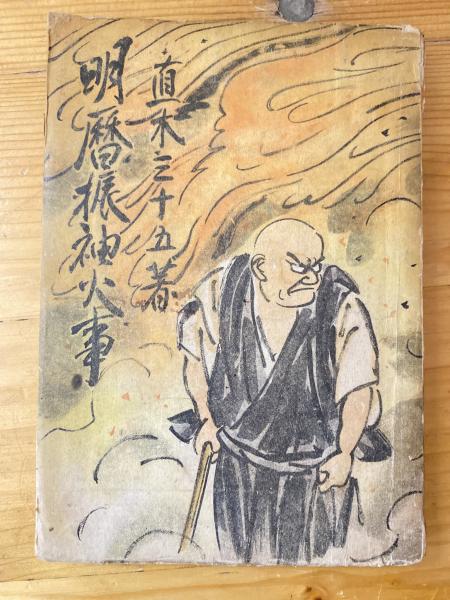 直木三十五著
明暦振袖火事